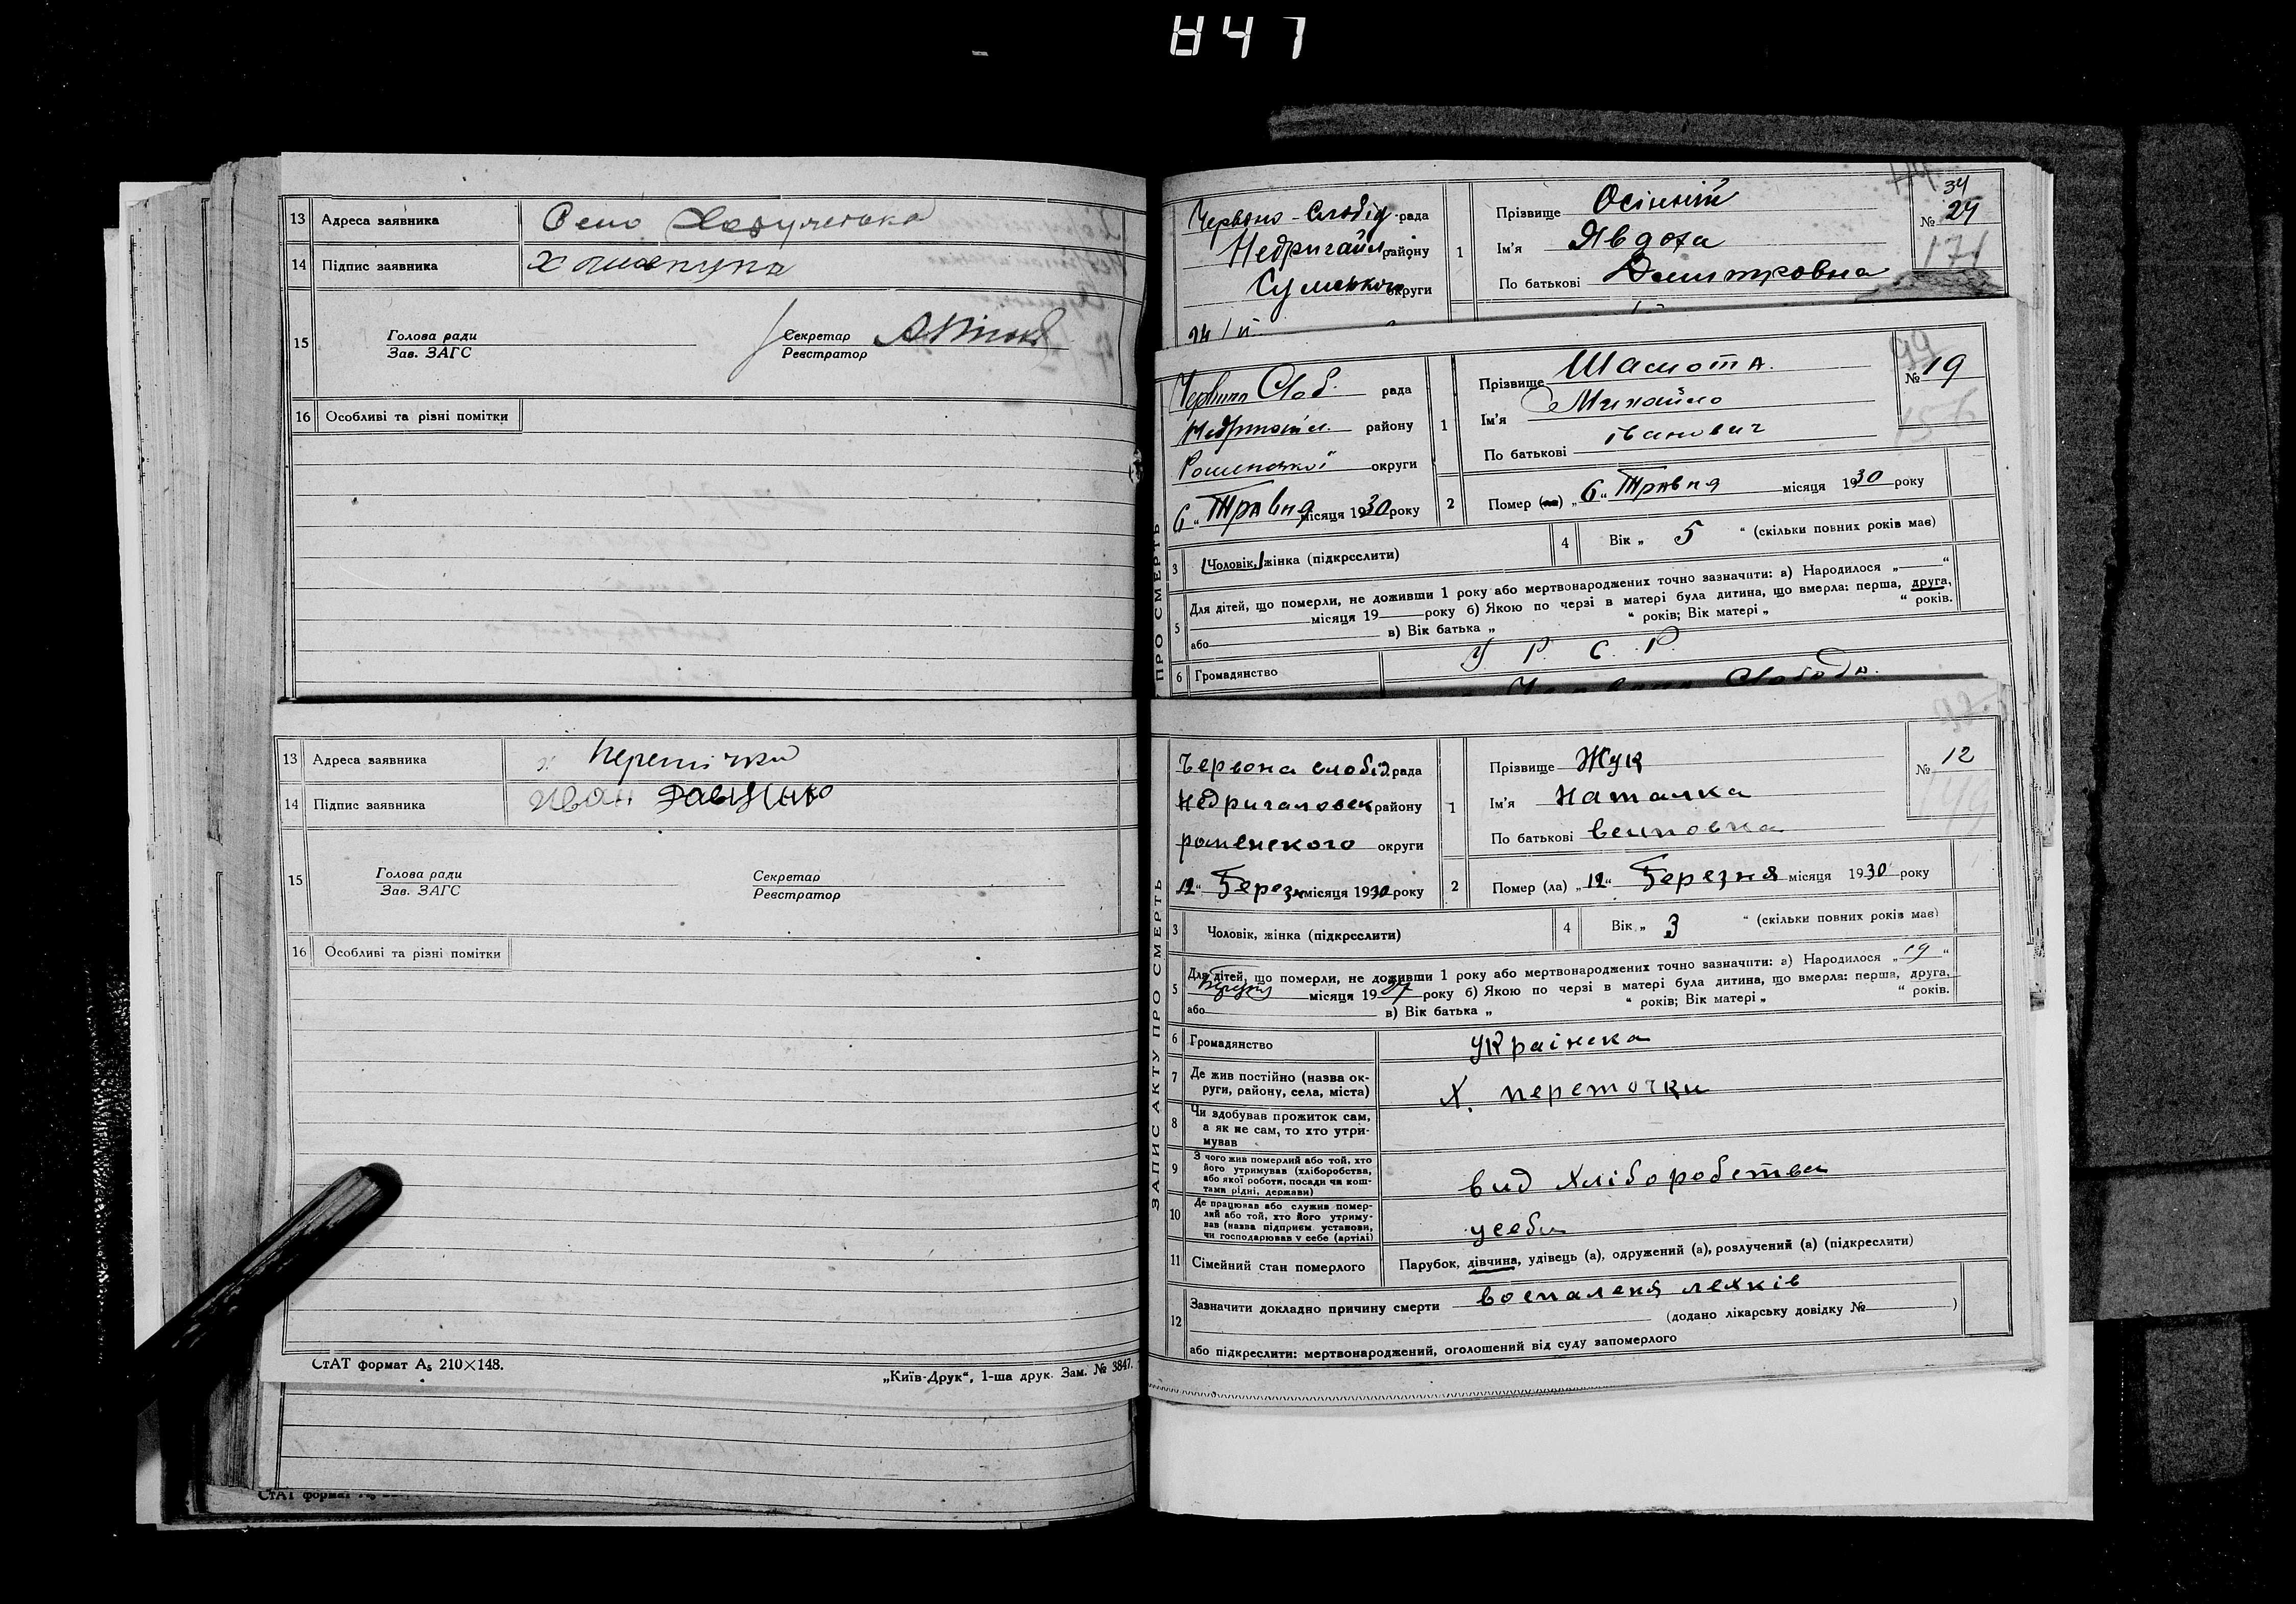 847
13 Адреса заявника Село
14 Підпис заявника
15 Голова ради Секретар
Зав. ЗАГС Реєстратор
16 Особливі та різні помітки
13 Адреса заявника
14 Підпис заявника Иван
15 Голова ради Секретар
Зав. ЗАГС Реєстратор
16 Особливі та різні помітки
СтАТ формат А₅ 210×148.
„Київ-Друк“, 1-ша друк. Зам. № 3847.
СтАТ формат
Червоно-Слобід рада
Недригайл району
Сумського округи
1 Прізвище Осінній
Ім'я Явдоха
По батькові Дмитровна
34
№ 29
171
Червоно Слоб. рада
Недригайл. району
Роменської округи
6 „ Травня місяця 1930 року
1 Прізвище Шамота.
Ім'я Михайло
По батькові іванович
№ 19
2 Помер (ла) „ 6 “ Травня місяця 1930 року
3 Чоловік, жінка (підкреслити)
4 Вік „ 5 “ (скільки повних років має)
5 Для дітей, що померли, не доживши 1 року або мертвонароджених точно зазначити: а) Народилося „ “
місяця 19 року б) Якою по черзі в матері була дитина, що вмерла: перша, друга,
або в) Вік батька „ “ років; Вік матері „ “ років.
6 Громадянство У. Р. С. Р.
Червона Слобода.
ЗАПИС АКТУ ПРО СМЕРТЬ
Червона слобід. рада
недригаловск району
роменского округи
12 “ Березня місяця 1930 року
1 Прізвище Жук
Ім'я Наталка
По батькові
№ 12
149
2 Помер (ла) „ 12 “ Березня місяця 1930 року
3 Чоловік, жінка (підкреслити)
4 Вік „ 3 “ (скільки повних років має)
5 Для дітей, що померли, не доживши 1 року або мертвонароджених точно зазначити: а) Народилося „ 19 “
місяця 1927 року б) Якою по черзі в матері була дитина, що вмерла: перша, друга,
або в) Вік батька „ “ років; Вік матері „ “ років.
6 Громадянство українска
7 Де жив постійно (назва округи, району, села, міста) Х. переточки
8 Чи здобував прожиток сам, а як не сам, то хто утримував
9 З чого жив померлий або той, хто його утримував (хліборобства, або якої роботи, посади чи коштами рідні, держави) вид хліборобства
10 Де працював або служив померлий або той, хто його утримував (назва підприєм. установи, чи господарював у себе (артілі) усебя
11 Сімейний стан померлого Парубок, дівчина, удівець (а), одружений (а), розлучений (а) (підкреслити)
12 Зазначити докладно причину смерти воспаленя лехків
(додано лікарську довідку № )
або підкреслити: мертвонароджений, оголошений від суду запомерлого